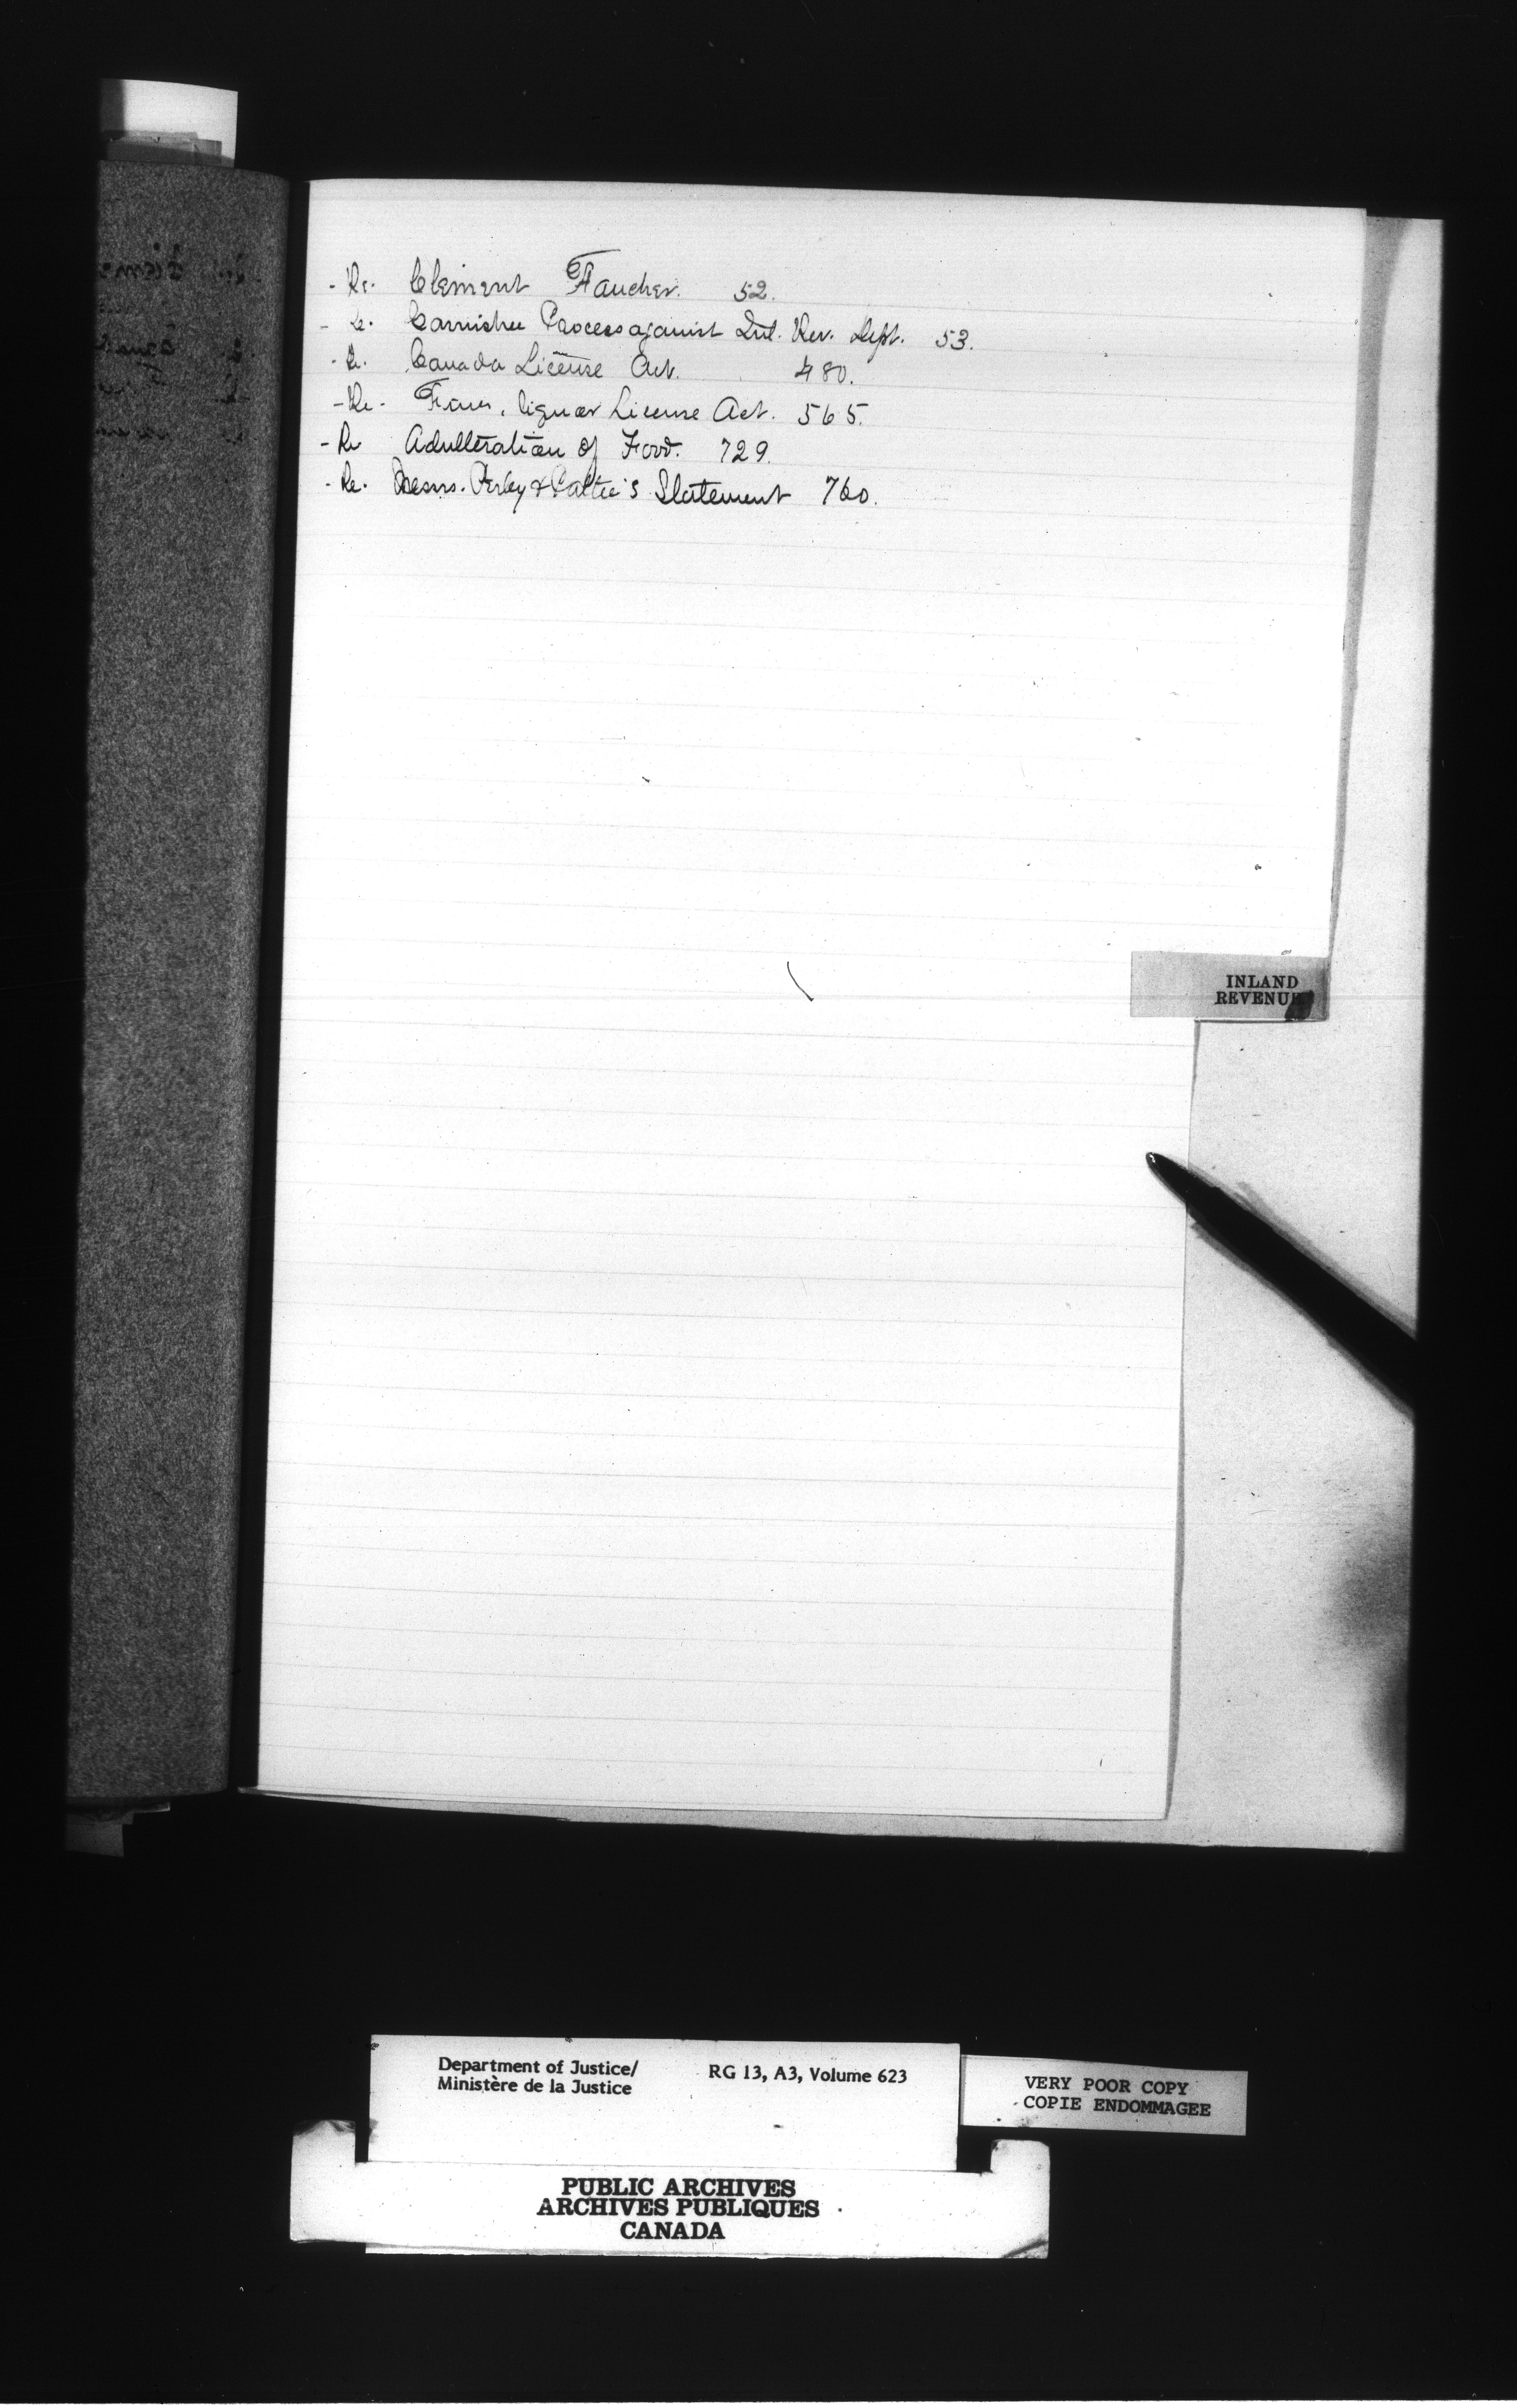 - Re. Clement Faucher. 52.
- Re. Garnishee Process against Inl. Rev. Dept. 53.
- Re. Canada License Act. 480.
- Re - Fines, liquor License Act. 565.
- Re Adulteration of Food. 729.
- Re. Messrs. Perley & Pattee's Statement 760.
INLAND
REVENUE
Department of Justice/
Ministère de la Justice
RG 13, A3, Volume 623
VERY POOR COPY
COPIE ENDOMMAGEE
PUBLIC ARCHIVES
ARCHIVES PUBLIQUES
CANADA